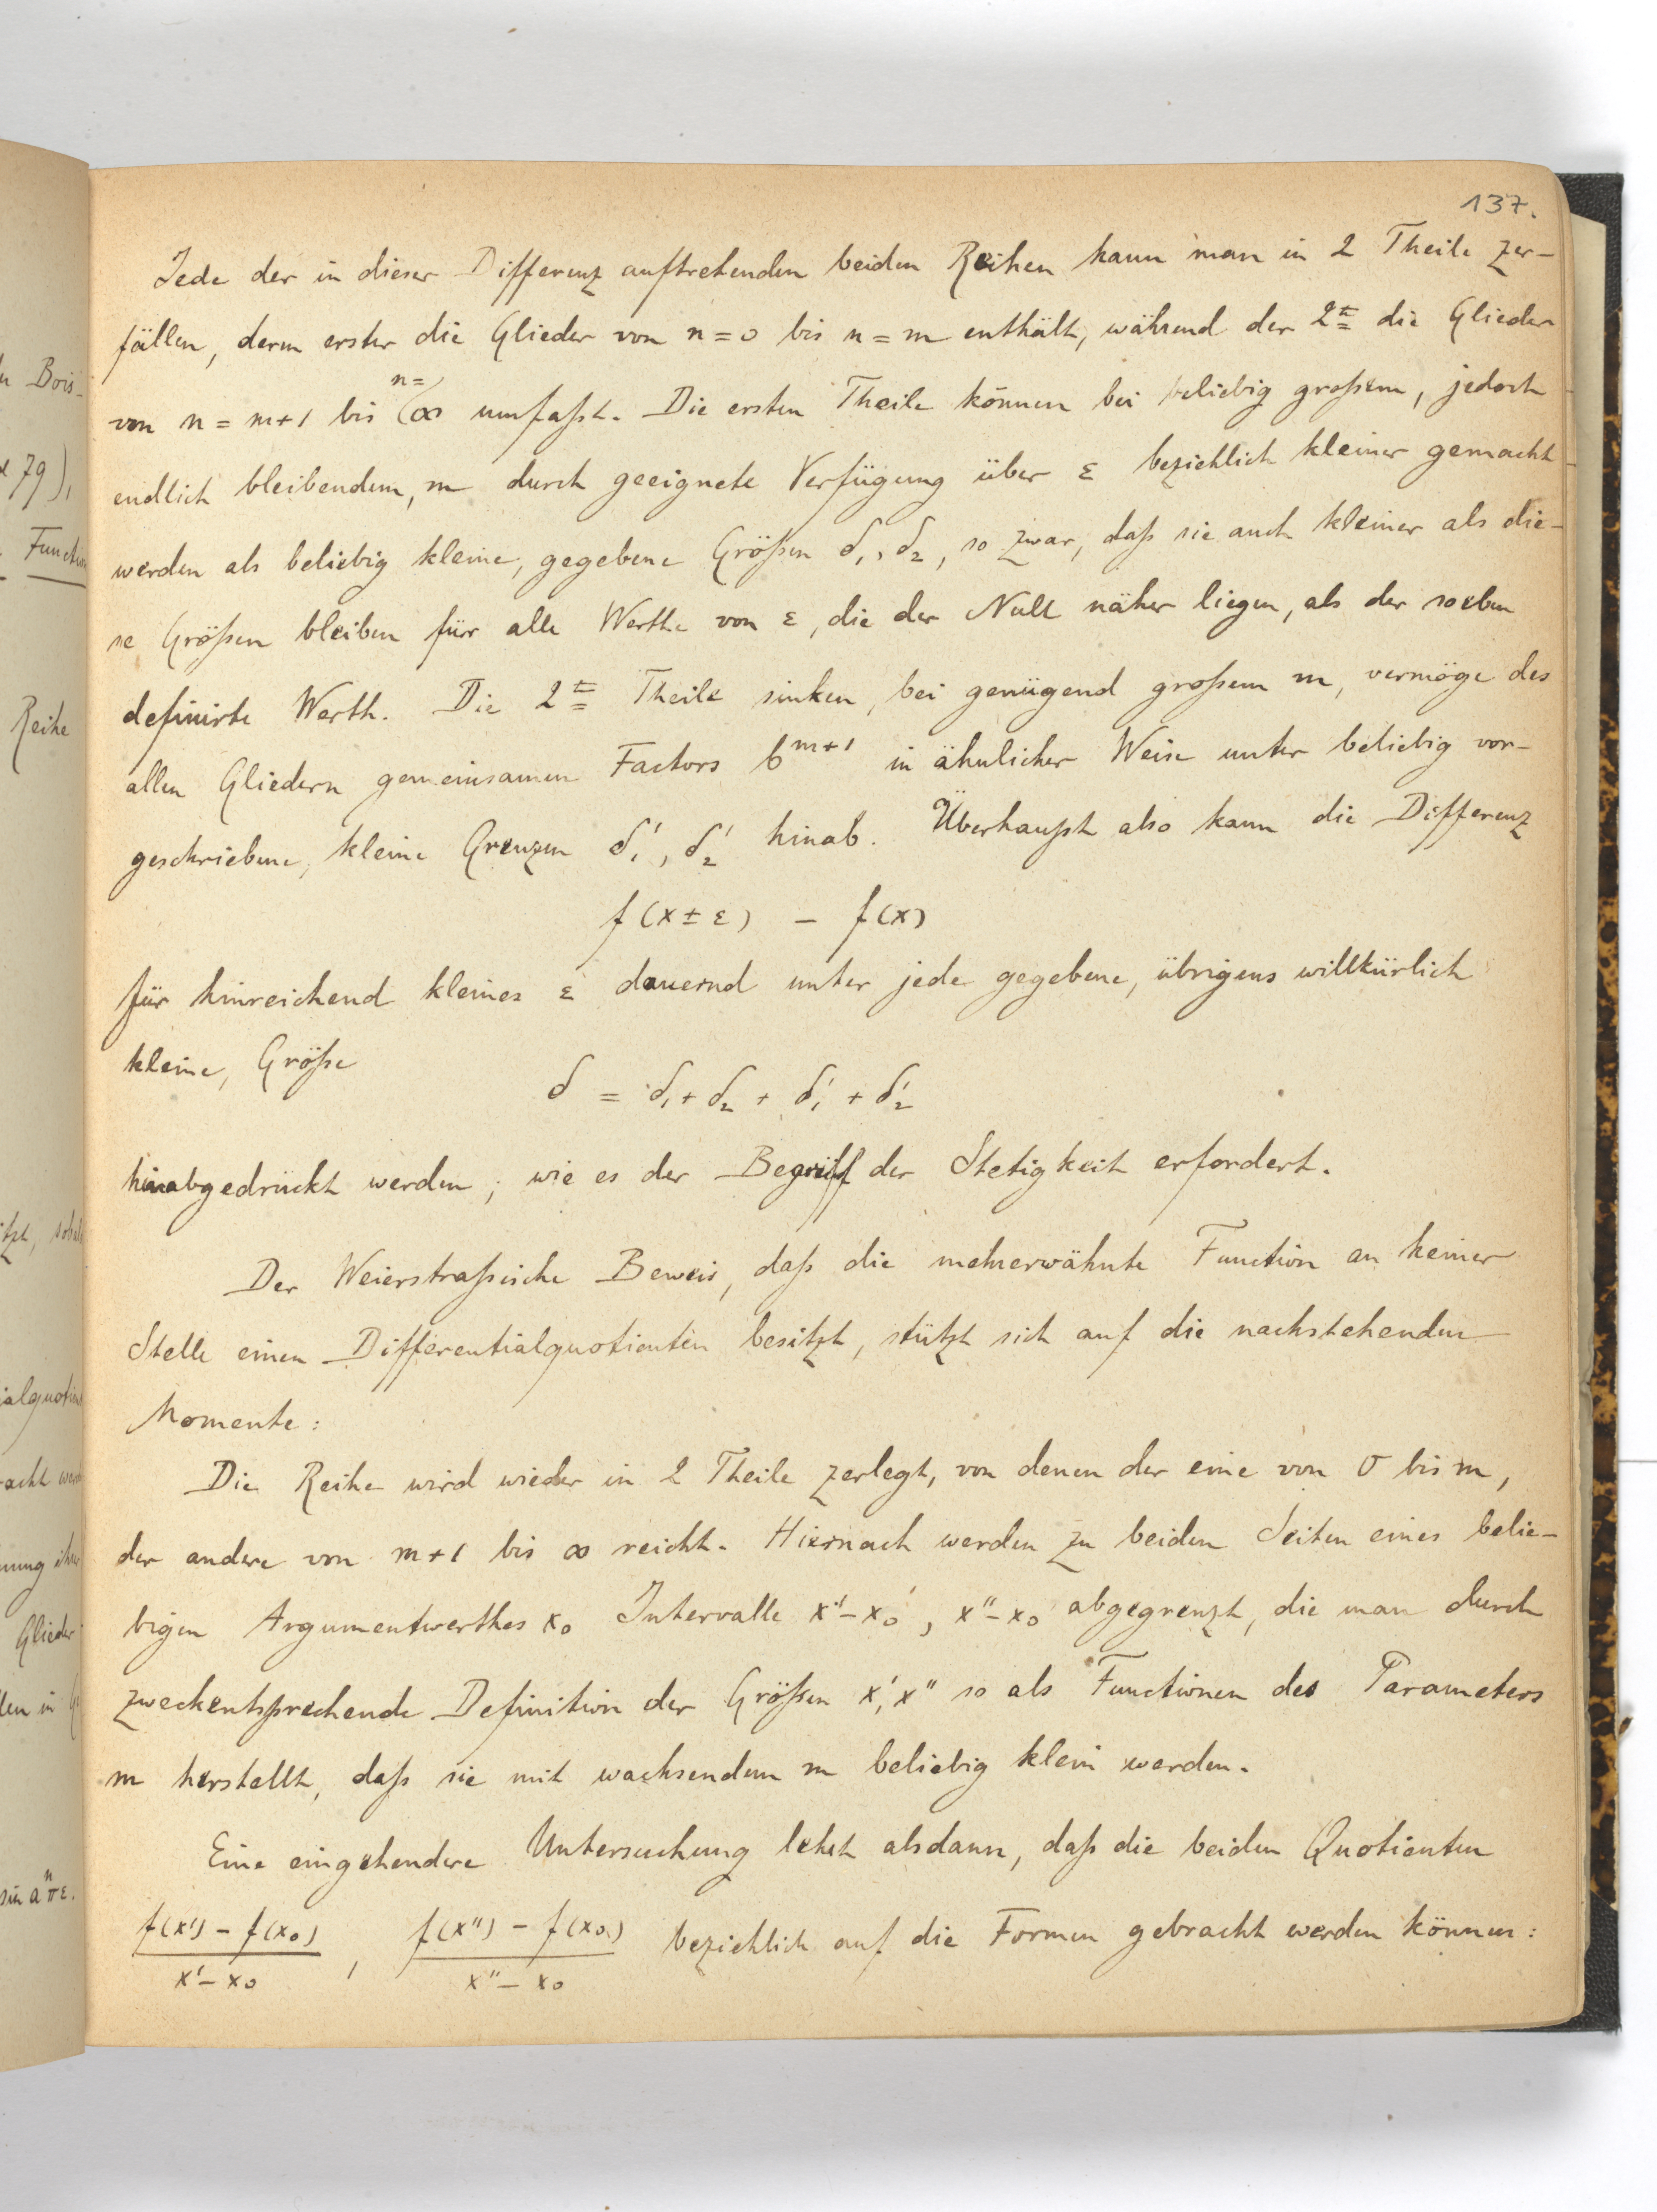 137.
Jede der in dieser Differenz auftretenden beiden Reihen kann man in 2 Theile zer-
fällen, deren erster die Glieder von n = 0 bis n = m enthält, während der 2te die Glieder
von n = m+1 bis n=∞ umfaßt. Die ersten Theile können bei beliebig großem, jedoch
endlich bleibendem, m durch geeignete Verfügung über ε beziehlich kleiner gemacht
werden als beliebig kleine, gegebene Größen δ₁, δ₂, so zwar, daß sie auch kleiner als die-
se Größen bleiben für alle Werthe von ε, die der Null näher liegen, als der soeben
definirte Werth. Die 2te Theile sinken, bei genügend großem m, vermöge des
allen Gliedern gemeinsamen Factors b^{m+1} in ähnlicher Weise unter beliebig vor-
geschriebene, kleine Grenzen δ₁', δ₂' hinab. Überhaupt also kann die Differenz
f(x ± ε) – f(x)
für hinreichend kleines ε dauernd unter jede gegebene, übrigens willkürlich
kleine, Größe
δ = δ₁ + δ₂ + δ₁' + δ₂'
hinabgedrückt werden, wie es der Begriff der Stetigkeit erfordert.
Der Weierstraßische Beweis, daß die mehrerwähnte Function an keiner
Stelle einen Differentialquotienten besitzt, stützt sich auf die nachstehenden
Momente:
Die Reihe wird wieder in 2 Theile zerlegt, von denen der eine von 0 bis m,
der andere von m+1 bis ∞ reicht. Hiernach werden zu beiden Seiten eines belie-
bigen Argumentwerthes x₀ Intervalle x'–x₀, x''–x₀ abgegrenzt, die man durch
zweckentsprechende Definition der Größen x', x'' so als Functionen des Parameters
m herstellt, daß sie mit wachsendem m beliebig klein werden.
Eine eingehendere Untersuchung lehrt alsdann, daß die beiden Quotienten
\frac{f(x') – f(x₀)}{x' – x₀}, \frac{f(x'') – f(x₀)}{x'' – x₀} beziehlich auf die Formen gebracht werden können: